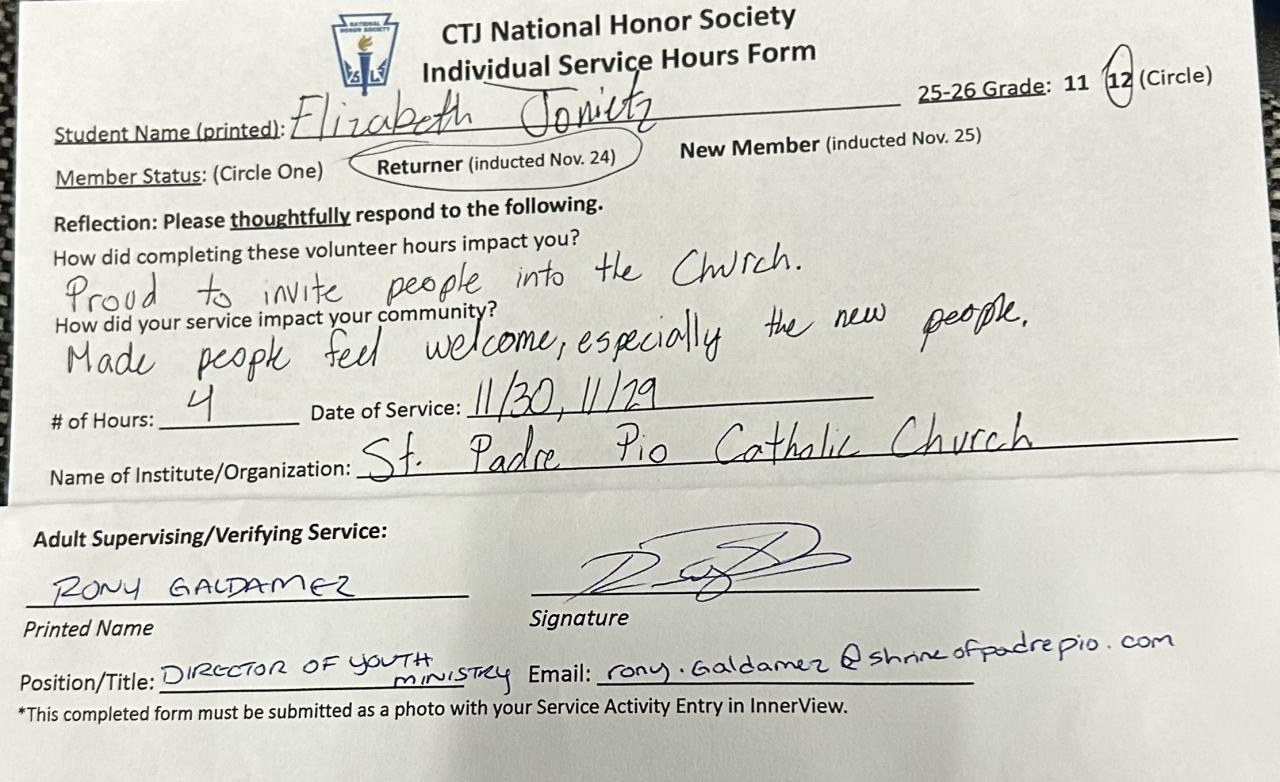 NATIONAL
HONOR SOCIETY
CTJ National Honor Society
Individual Service Hours Form
Student Name (printed): Elizabeth Jonietz 25-26 Grade: 11 12 (Circle)
Member Status: (Circle One) Returner (inducted Nov. 24) New Member (inducted Nov. 25)
Reflection: Please thoughtfully respond to the following.
How did completing these volunteer hours impact you?
Proud to invite people into the Church.
How did your service impact your community?
Made people feel welcome, especially the new people.
# of Hours: 4 Date of Service: 11/30, 11/29
Name of Institute/Organization: St. Padre Pio Catholic Church
Adult Supervising/Verifying Service:
RONY GALDAMEZ
Printed Name Signature
Position/Title: DIRECTOR OF YOUTH MINISTRY Email: rony.Galdamez@shrineofpadrepio.com
*This completed form must be submitted as a photo with your Service Activity Entry in InnerView.